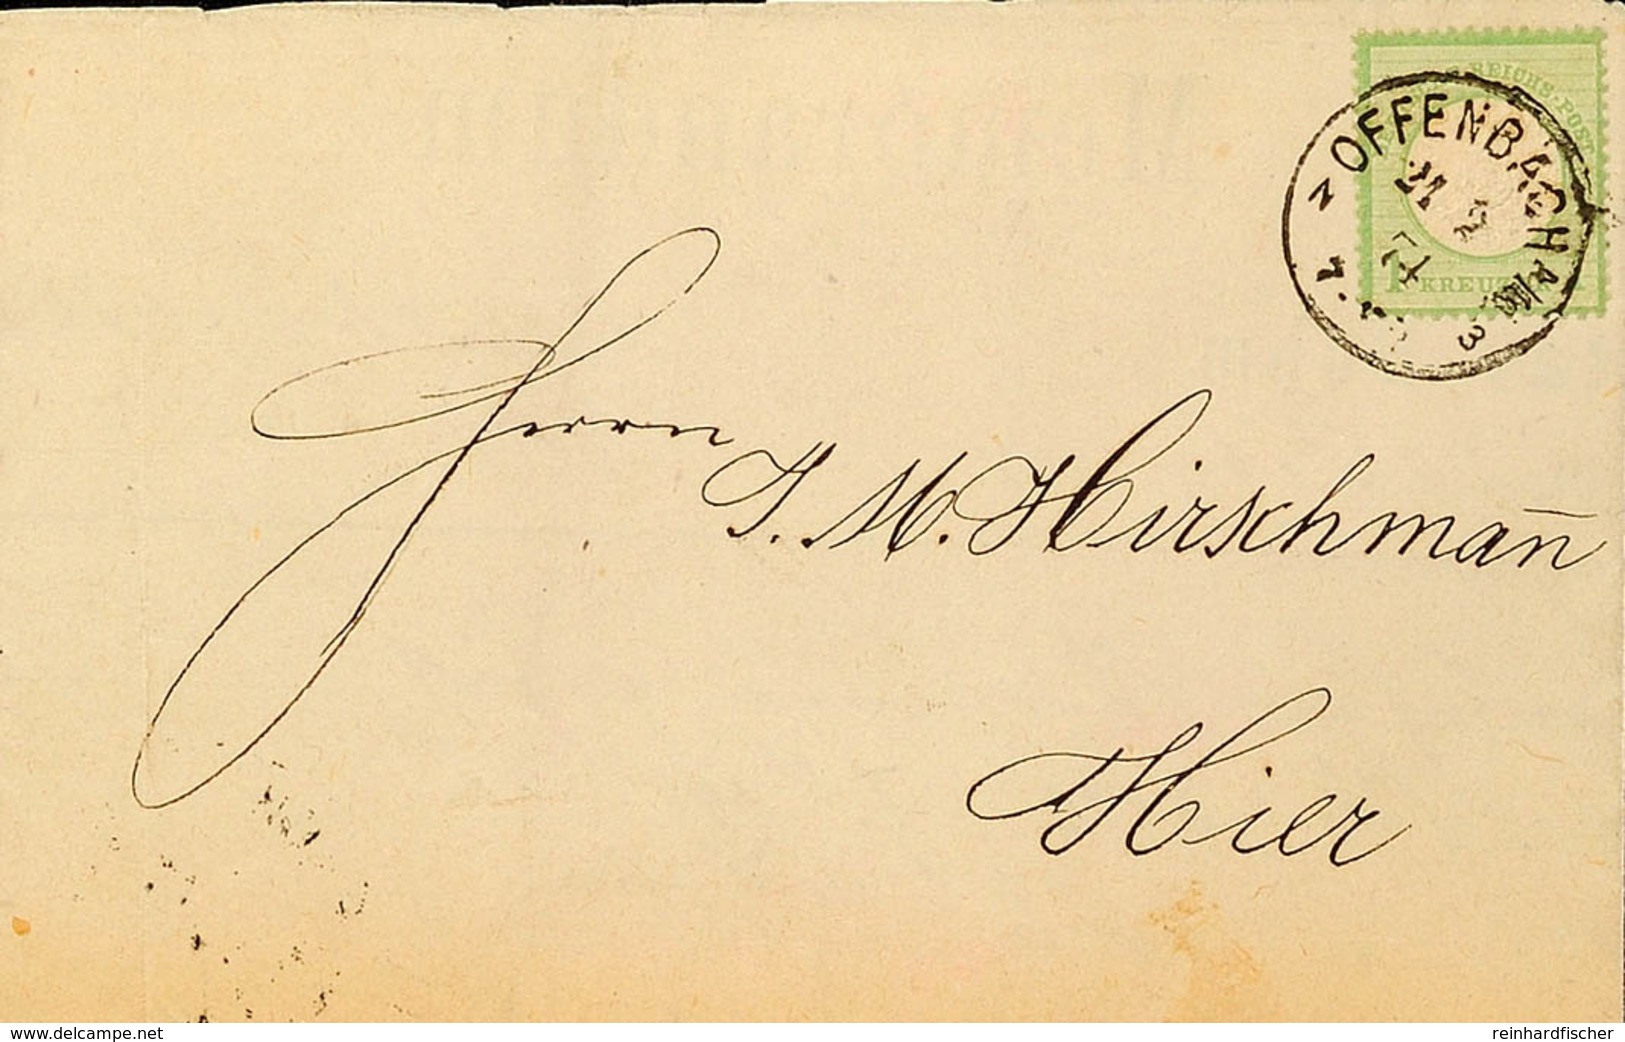 REICHS-POST
OFFENBACH A/M
KREUZER
Herrn
J. M. Hirschman̅
Hier
www.delcampe.net
reinhardfischer